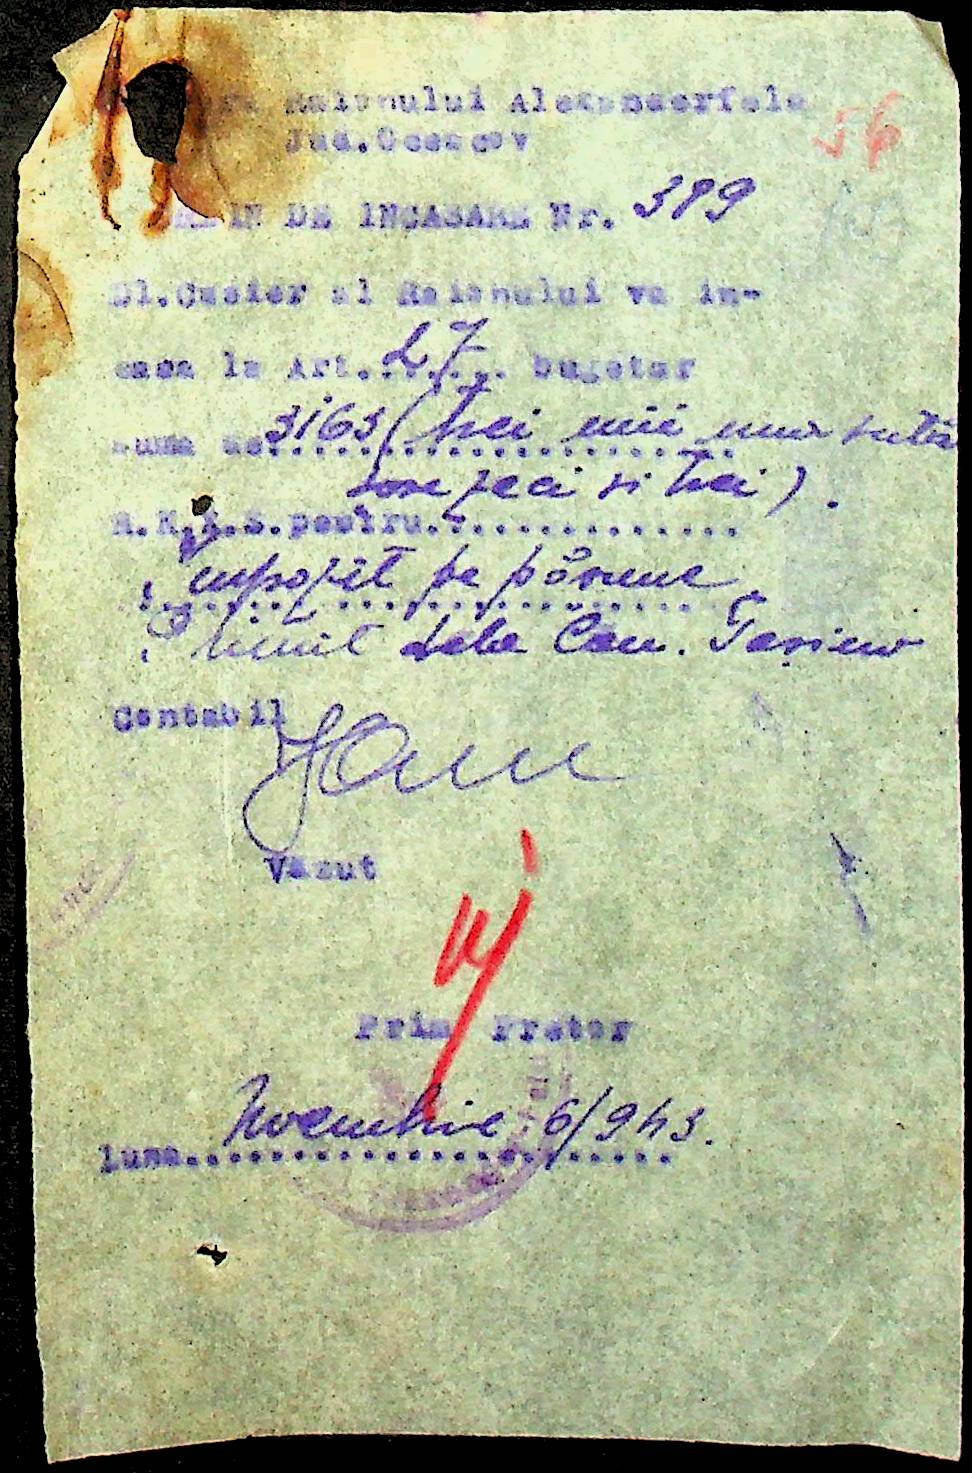 Raionului Alexanderfeld
Jud.Oceacov
56
DE INCASARE Nr. 389
Dl.Casier al Raionului va in-
casa la Art.27... bugetar
suma de 3163 (trei mii una suta
sase zeci si trei).
R.M.K.S.pentru..............
impozit pe păsune
Primit dela Com. Tasino
Contabil
Vazut
Prim Pretor
luna Noembrie 6/943.